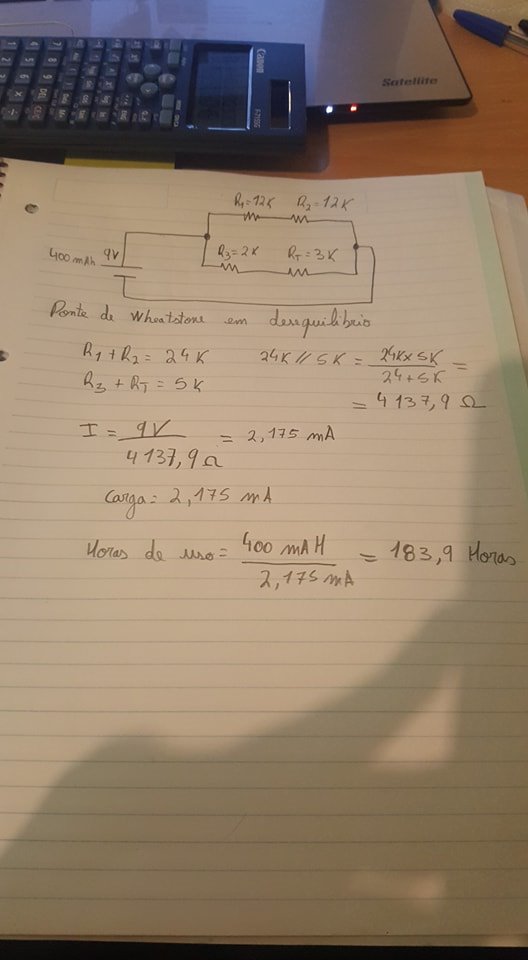 Canon
F-715SG
Satellite
R1=12K R2=12K
400mAh 9V
R3=2K RT=3K
Ponte de Wheatstone em desequilibrio
R1+R2= 24K 24K//5K = 24Kx5K / 24+5K =
R3+RT= 5K
= 4137,9 Ω
I = 9V / 4137,9Ω = 2,175 mA
Carga= 2,175 mA
Horas de uso= 400 mAH / 2,175mA = 183,9 Horas